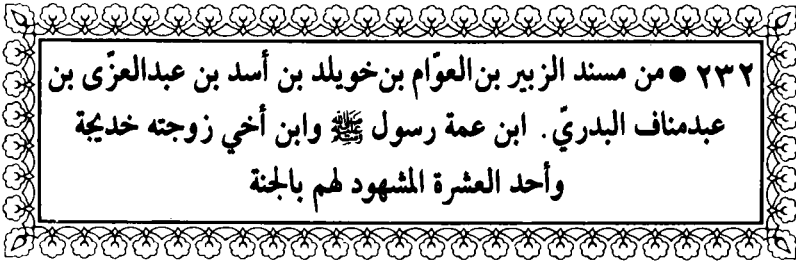 ٢٣٢ ● من مسند الزبير بن العوّام بن خويلد بن أسد بن عبدالعزّى بن
عبدمناف البدريّ . ابن عمة رسول ﷺ وابن أخي زوجته خديجة
وأحد العشرة المشهود لهم بالجنة